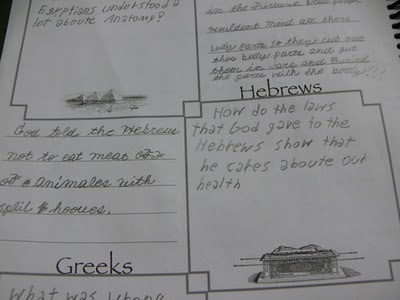 Egyptians understood a
lot aboute Anatomy?
in the Future
wouldent need all there
body parts so they cut out
the body parts and put
them in Jars and Buried
the parts with the body!!!
God told the Hebrews
not to eat meat
of animales with
split hooves.
Hebrews
How do the laws
that God gave to the
Hebrews show that
he cares aboute our
health
Greeks
What was wrong